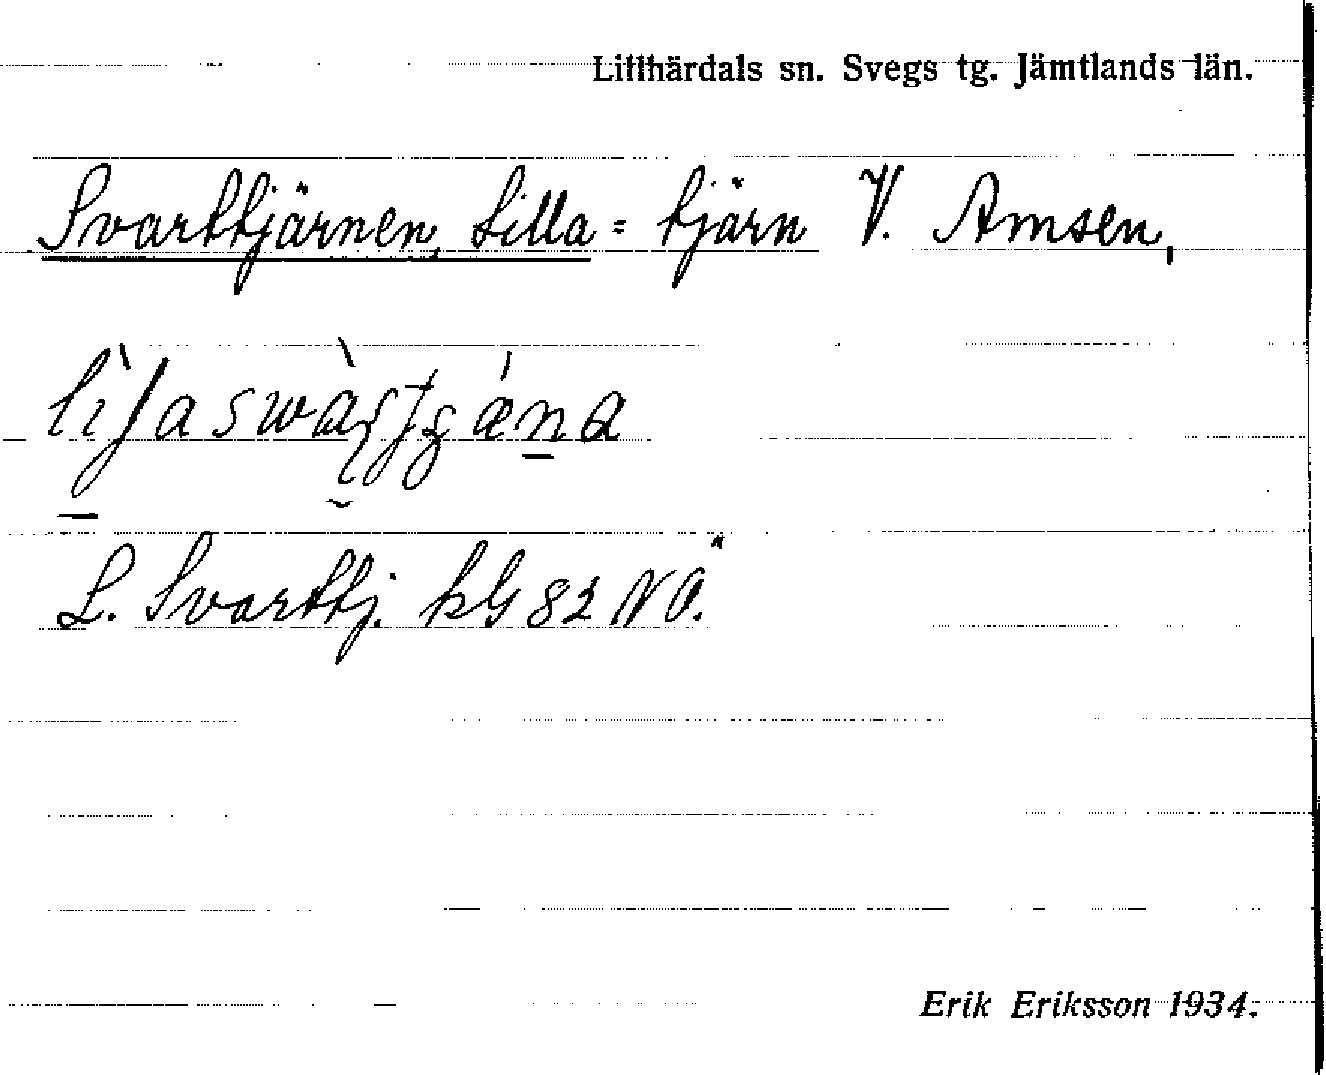 Lillhärdals sn. Svegs tg. Jämtlands län.
Svarttjärnen, Lilla = tjärn V. Amsen,
L. Svarttj. kG 82 NÖ.
Erik Eriksson 1934.